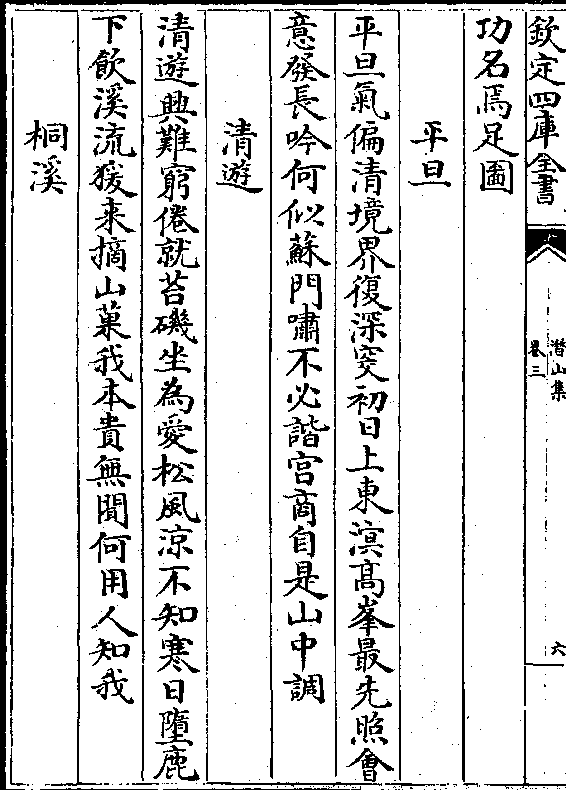 欽定四庫全書
潛山集
卷三
六
功名焉足圖
平旦
平旦氣偏清境界復深窔初日上東溟高峯最先照會
意發長吟何似蘇門嘯不必諧宫商自是山中調
清遊
清遊興難窮倦就苔磯坐為愛松風涼不知寒日墮鹿
下飲溪流猨来摘山菓我本貴無聞何用人知我
桐溪